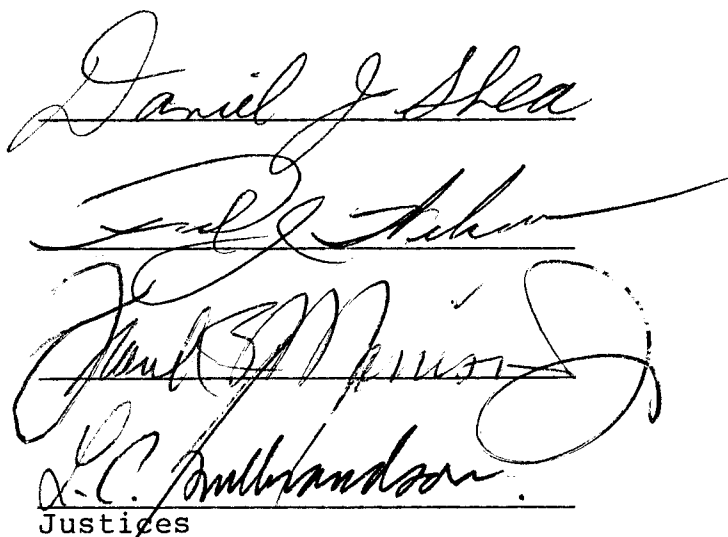 Daniel J Shea
Fred J Weber
Frank B Morrison Jr
L.C. Gulbrandson.
Justices